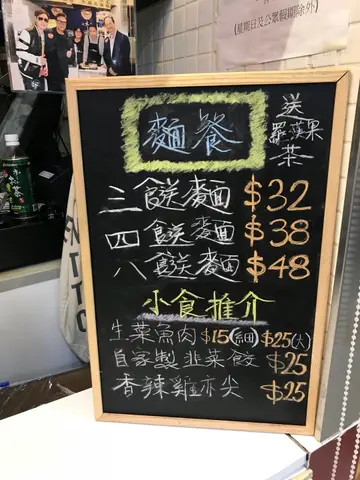 (星期日及公眾假期除外)
麵餐
送
羅漢果
茶
三餸麵 $32
四餸麵 $38
八餸麵 $48
小食推介
生菜魚肉 $15(細) $25(大)
自家製韭菜餃 $25
香辣雞亦尖 $25